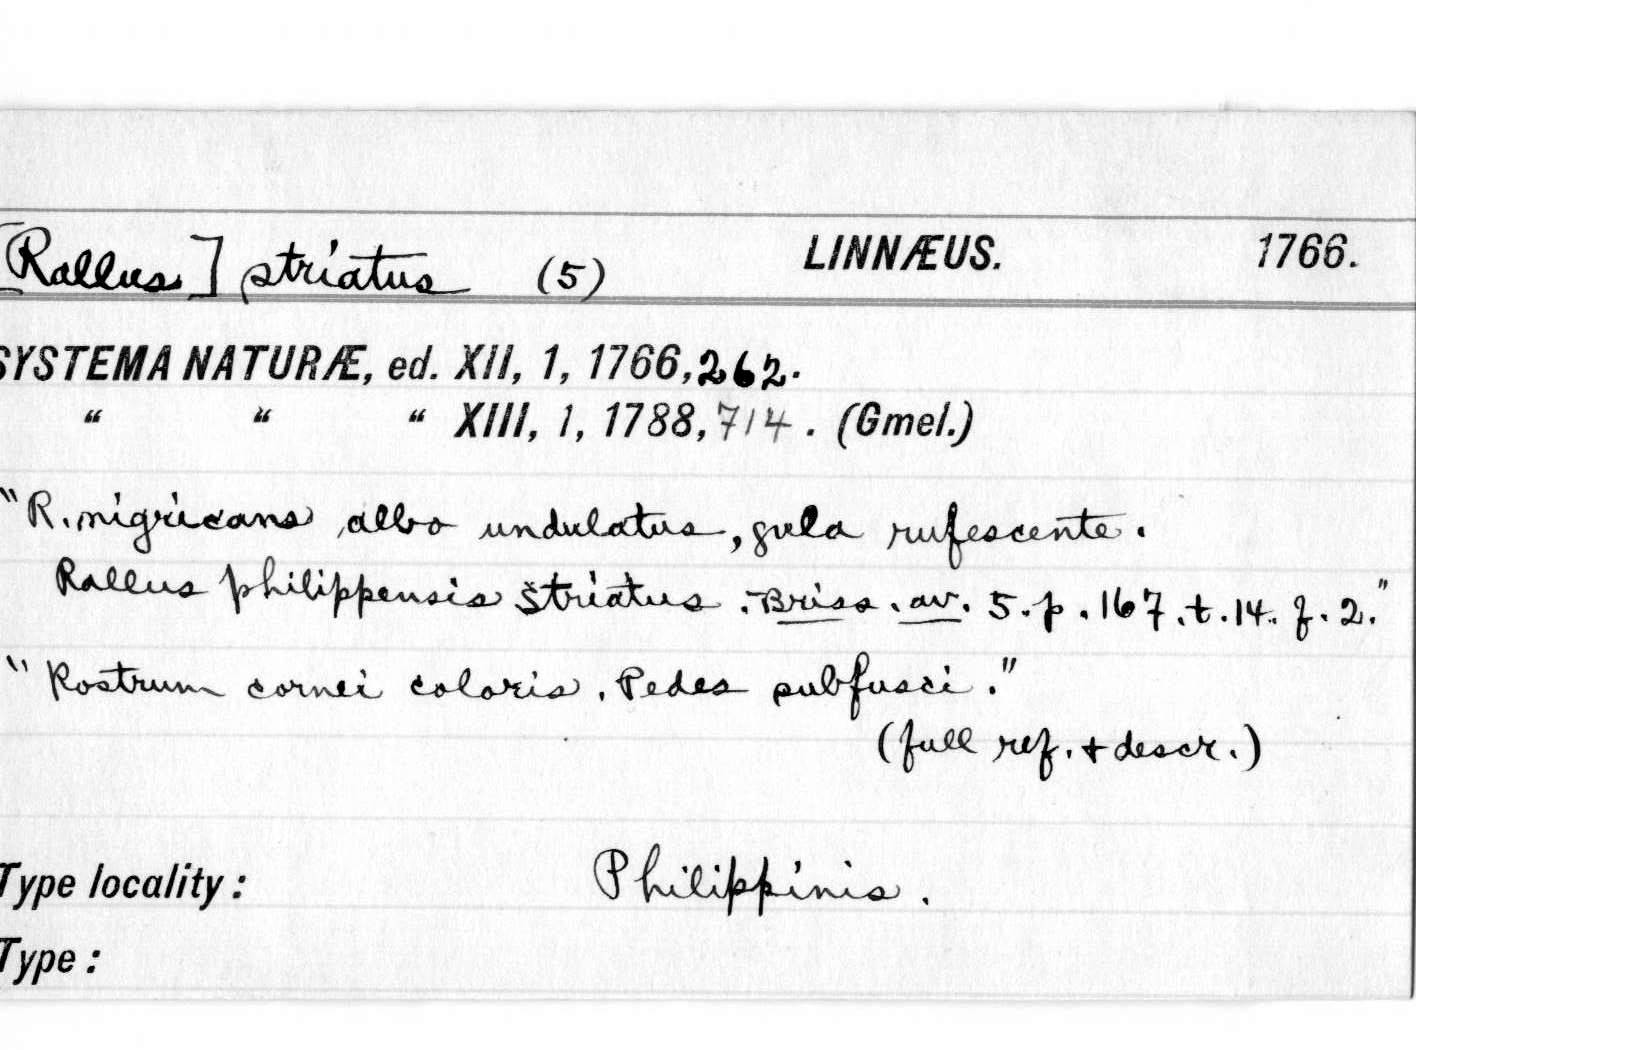 [Rallus] striatus (5) LINNÆUS. 1766.
SYSTEMA NATURÆ, ed. XII, 1, 1766, 262.
“ “ “ XIII, 1, 1788, 714. (Gmel.)
"R. nigricans albo undulatus, gula rufescente.
Rallus philippensis striatus. Briss. av. 5. p. 167. t. 14. f. 2."
"Rostrum cornei coloris. Pedes subfusci."
(full ref. + descr.)
Type locality: Philippinis.
Type: